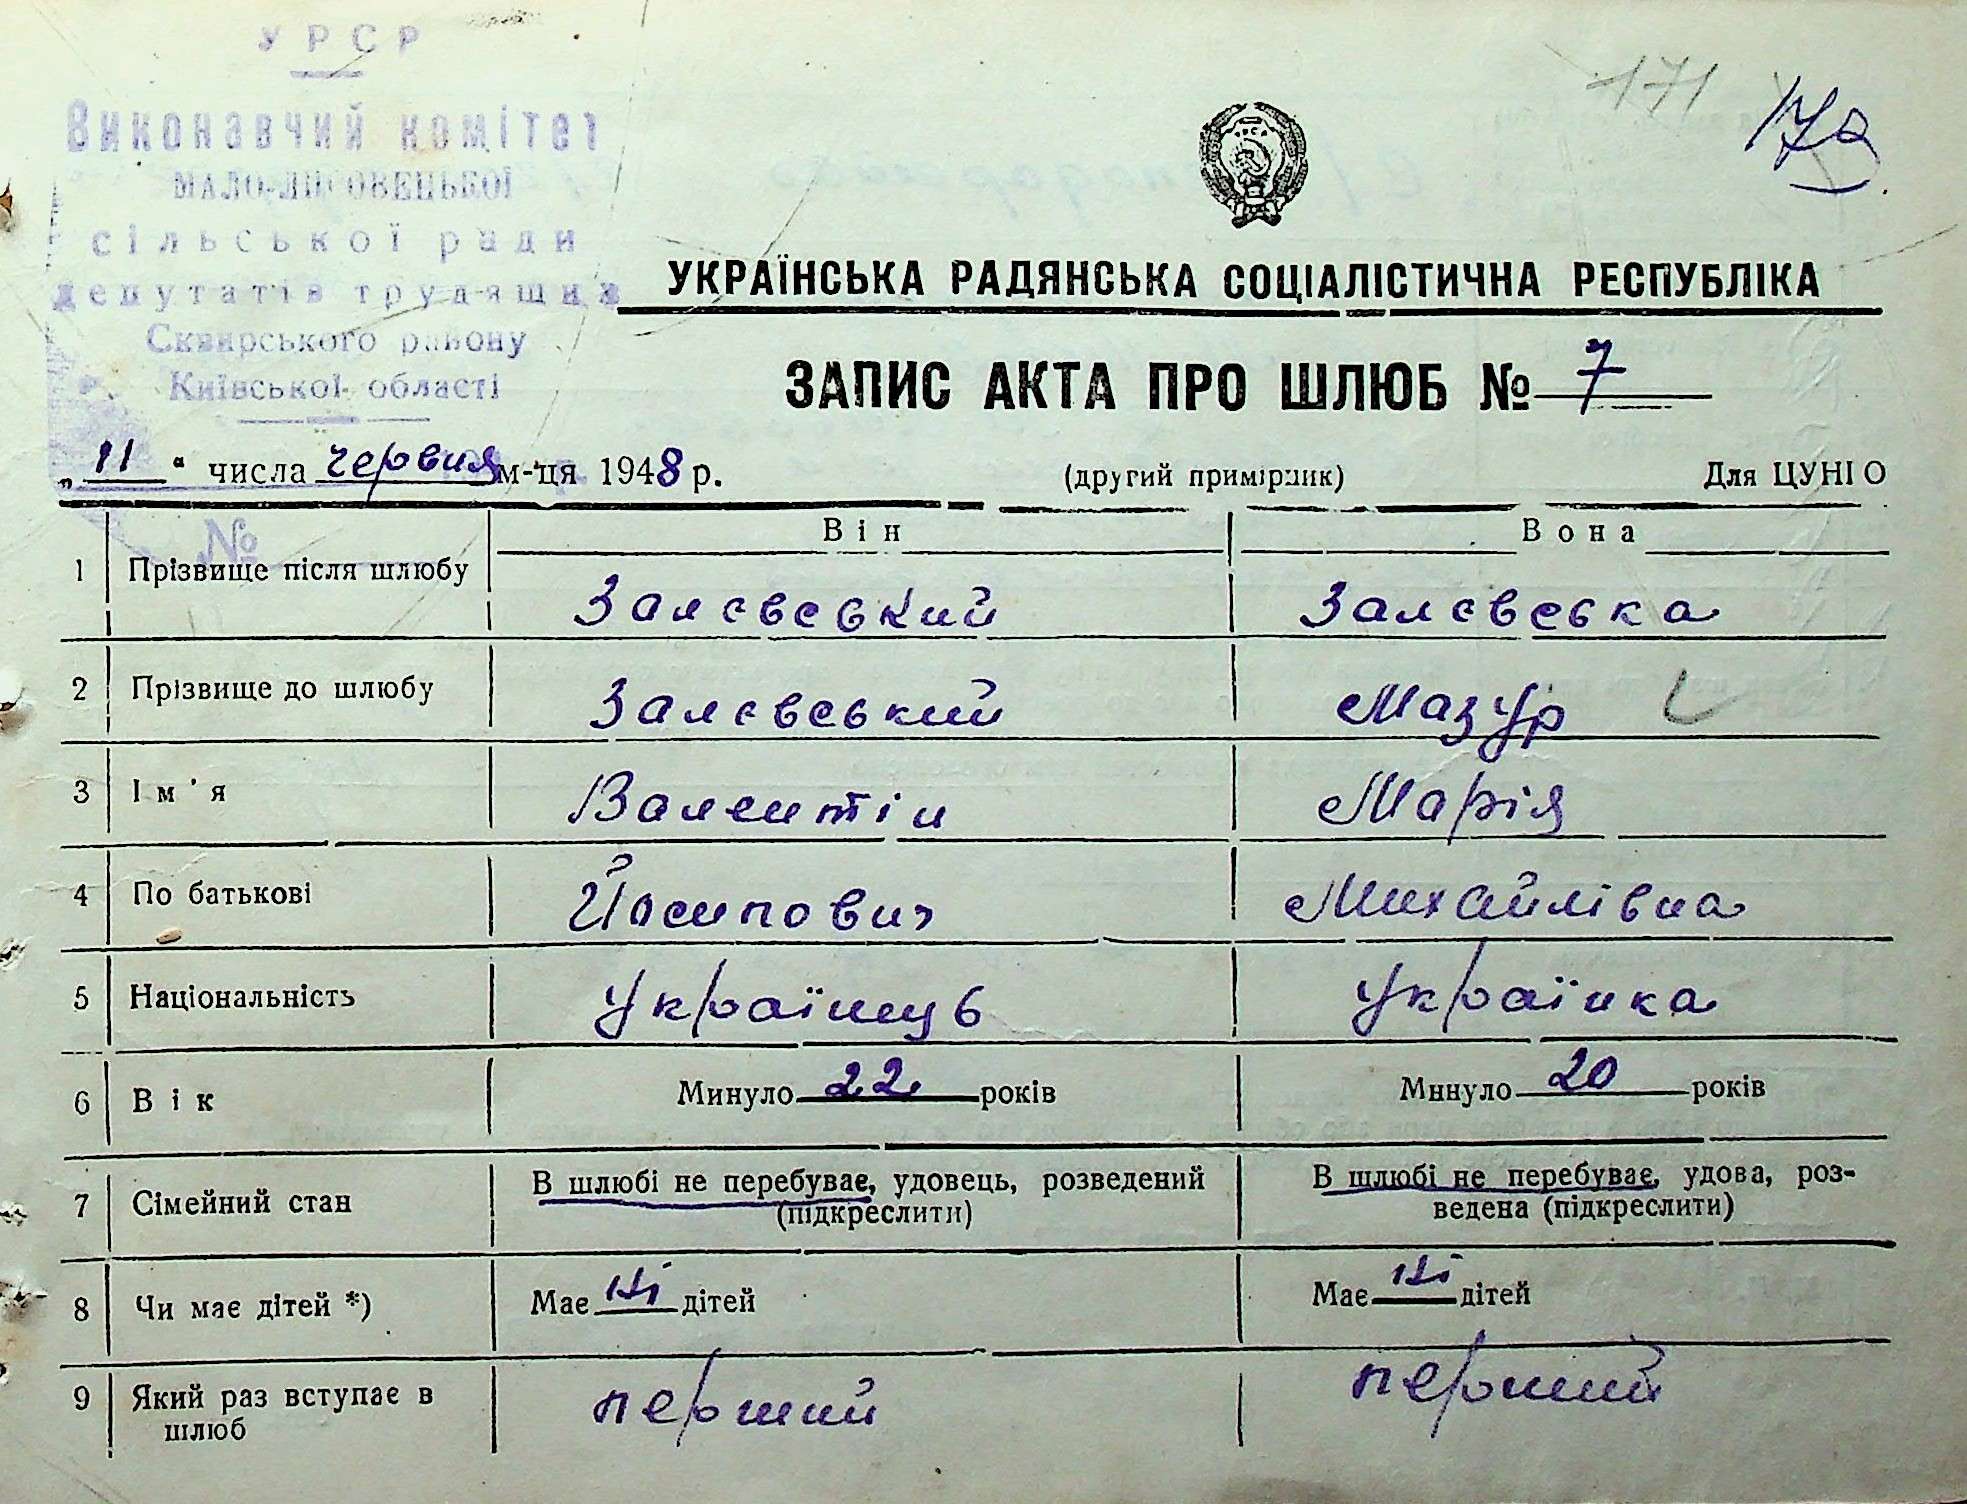 УРСР
Виконавчий комітет
МАЛО-ЛИСОВЕЦЬКОЇ
сільської ради
депутатів трудящих
Сквирського району
Київської області
№
171
172
УРСР
УКРАЇНСЬКА РАДЯНСЬКА СОЦІАЛІСТИЧНА РЕСПУБЛІКА
ЗАПИС АКТА ПРО ШЛЮБ № 7
„ 11 “ числа червня м-ця 1948 р. (другий примірник) Для ЦУНГО
Він Вона
1 Прізвище після шлюбу Залєвський Залєвська
2 Прізвище до шлюбу Залєвський Мазур
3 Ім'я Валентін Марія
4 По батькові Йосипович Михайлівна
5 Національність Українець Українка
6 Вік Минуло 22 років Минуло 20 років
7 Сімейний стан В шлюбі не перебуває, удовець, розведений (підкреслити) В шлюбі не перебуває, удова, роз-
ведена (підкреслити)
8 Чи має дітей *) Має ні дітей Має ні дітей
9 Який раз вступає в
шлюб перший перший